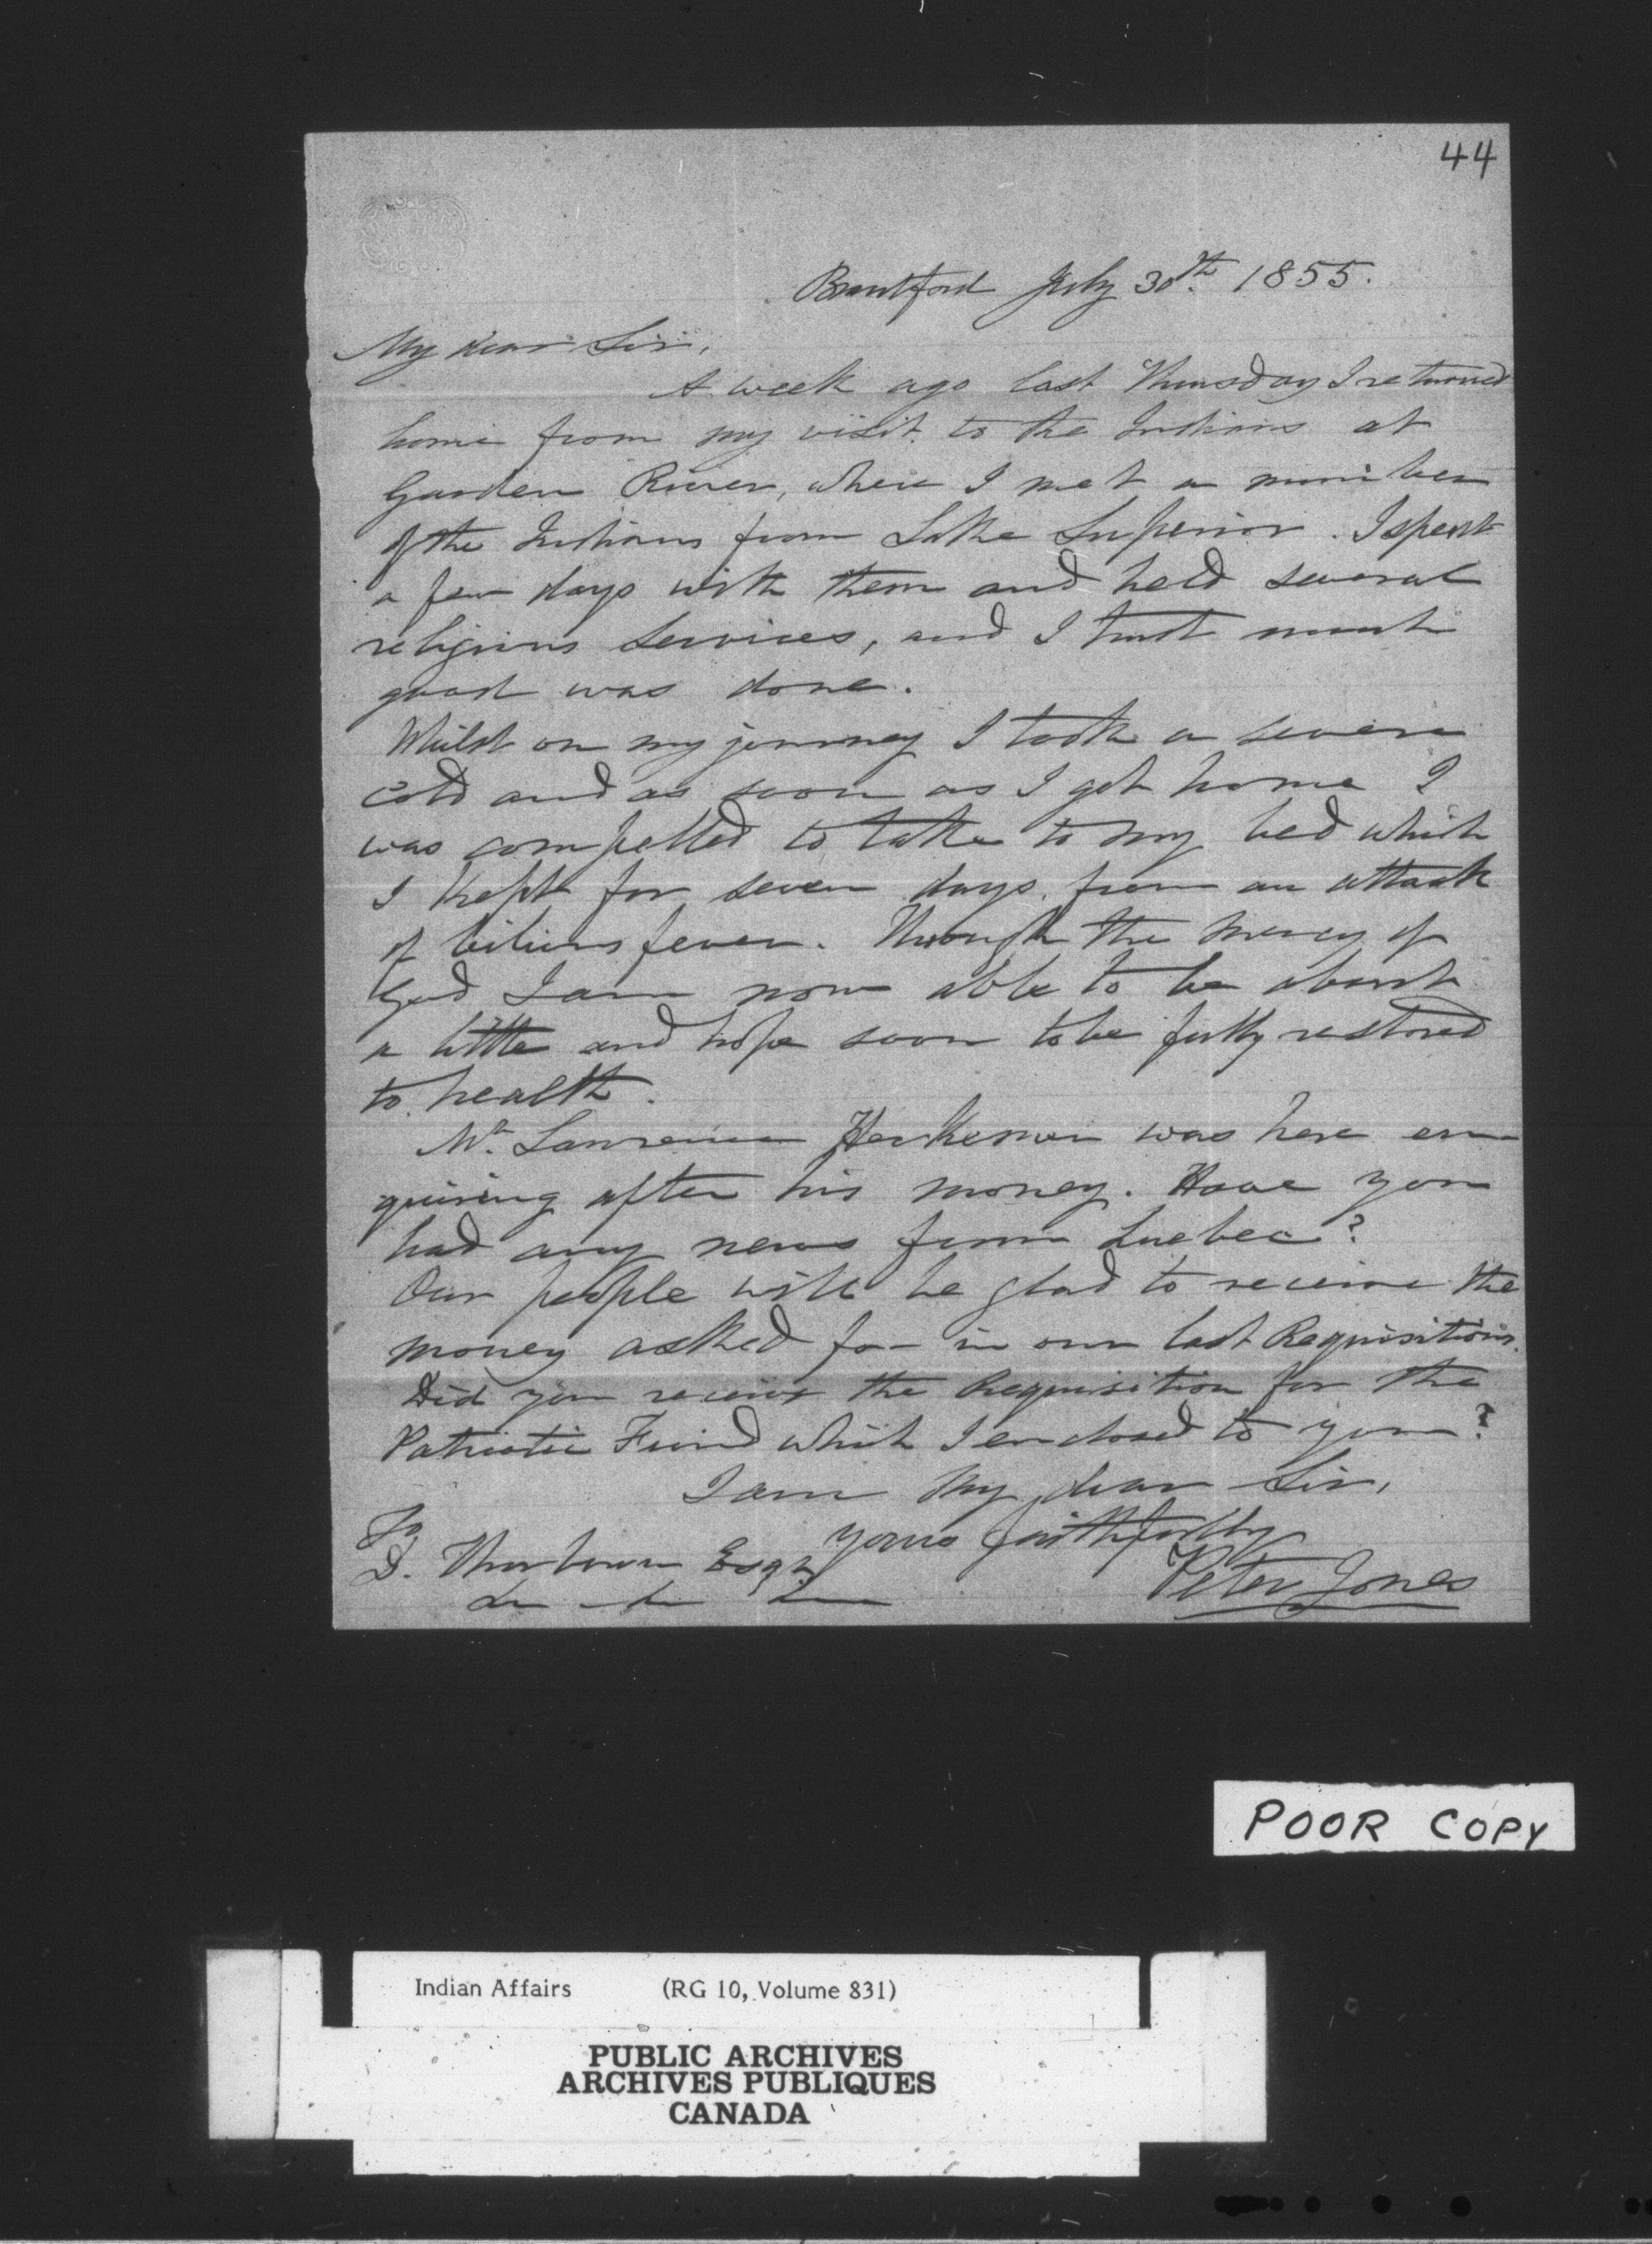 44
Brantford July 30th 1855.
My dear Sir,
A week ago last Thursday I returned
home from my visit to the Indians at
Garden River, where I met a number
of the Indians from Lake Superior. I spent
a few days with them and held several
religious services, and I trust much
good was done.
Whilst on my journey I took a severe
cold and as soon as I got home I
was compelled to take to my bed which
I kept for seven days from an attack
of bilious fever. Through the mercy of
God I am now able to be about
a little and hope soon to be fully restored
to health.
Mr. Lawrence Herkemer was here en-
quiring after his money. Have you
had any news from Quebec?
Our people will be glad to receive the
money asked for in our last Requisitions.
Did you receive the Requisition for the
Patriotic Fund which I enclosed to you?
I am my dear Sir,
yours faithfully
Peter Jones
To
D. Thorburn Esqr.
POOR COPY
Indian Affairs (RG 10, Volume 831)
PUBLIC ARCHIVES
ARCHIVES PUBLIQUES
CANADA